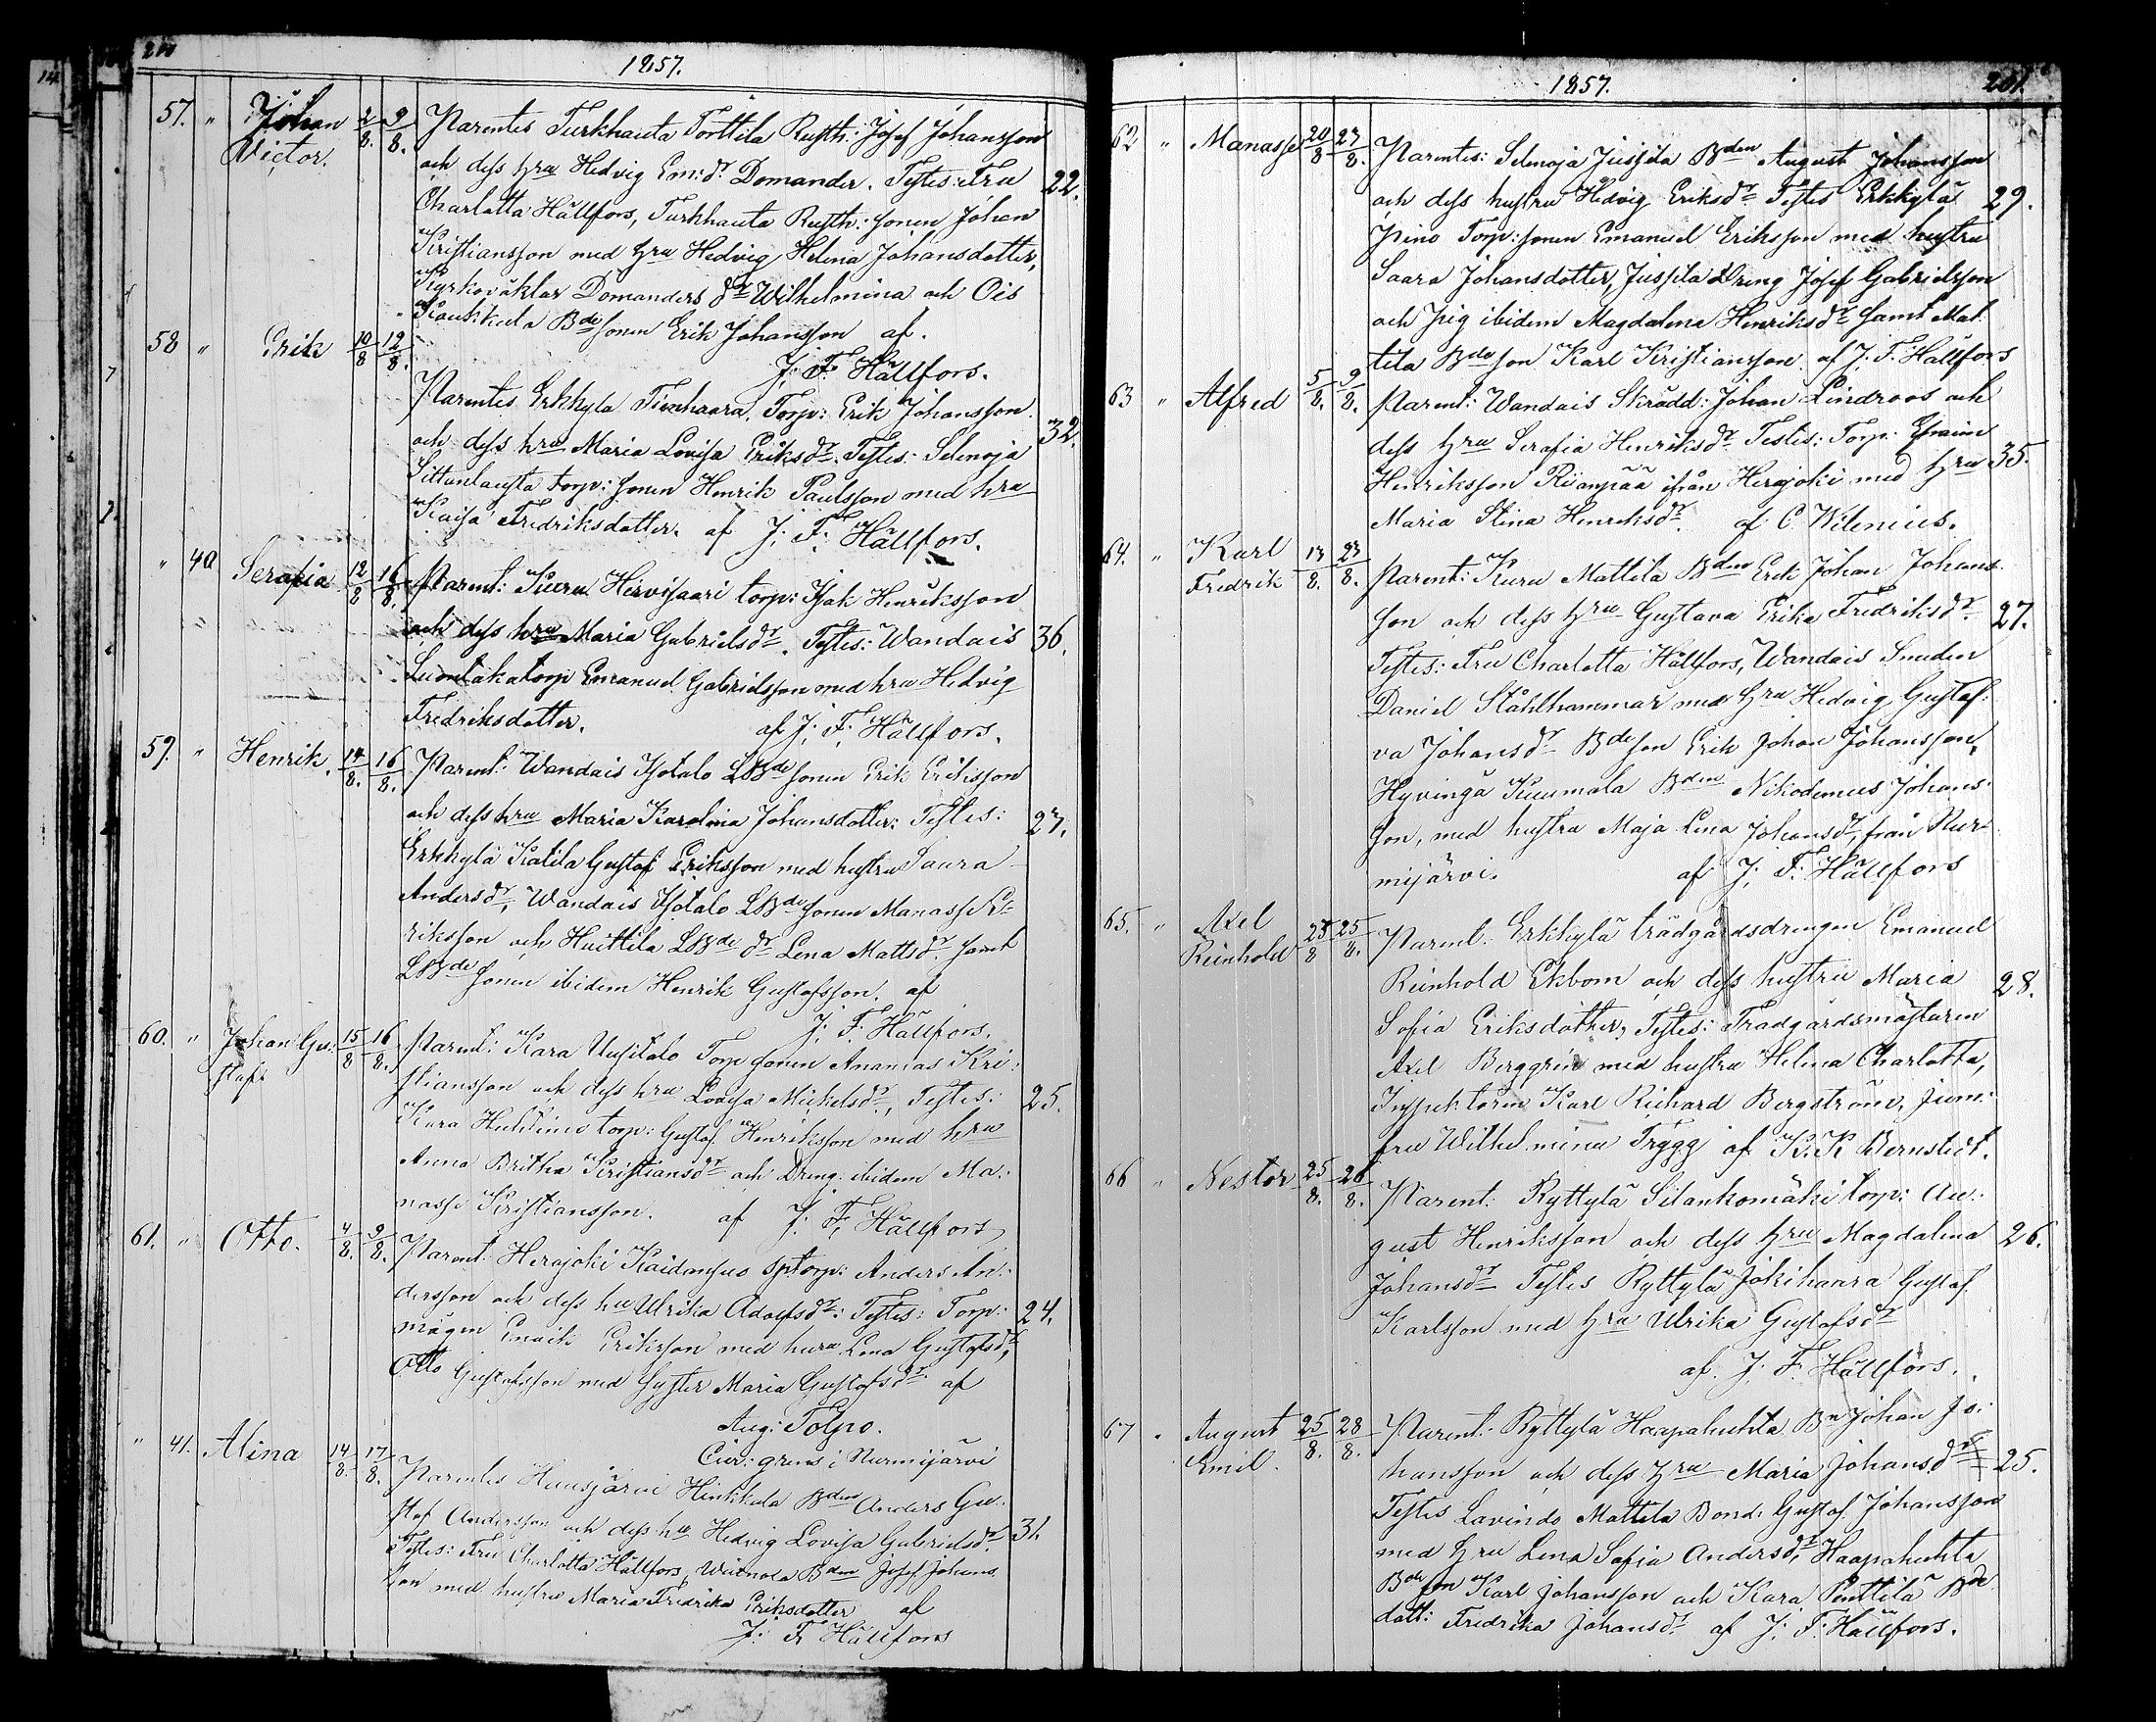 1857.
57. " Johan 2/8. 9/8. Parentes Turkhauta Torttila Rusth: Josef Johansson
Victor. och dess hru Hedvig Em: dr Domander. Testes: Fru 22.
Charlotta Hällfors, Turkhauta Rusth: sonen Johan
Kristiansson med hru Hedvig Helena Johansdotter,
Kyrkoväktar Domanders dr Wilhelmina och Ois
Kaukkula Bde sonen Erik Johansson af.
J. F. Hällfors.
58 " Erik 10/8 12/8. Parentes Erkkylä Torp: Erik Johansson
och dess hru Maria Lovisa Eriksdr. Testes: Selenoja 32.
torp: sonen Henrik Paulsson med hru
Kaisa Fredriksdotter. af J. F. Hällfors.
" 40 Serafia 12/8 16/8. Parent: Hirvisaari torp: Isak Henriksson
och dess hru Maria Gabrielsdr. Testes: Wandais 36.
torp Emanuel Gabrielsson med hru Hedvig
Fredriksdotter. af J. F. Hällfors.
59. " Henrik. 14/8. 16/8. Parent: Wandais Isotalo LBde sonen Erik Eriksson
och dess hru Maria Karolina Johansdotter: Testes: 27.
Erkkylä Katila Gustaf Eriksson med hustru Saara
Andersdr, Wandais Isotalo LBde sonen Manasse E-
riksson och Huittila LBde dr Lena Mattsdr samt
LBde sonen ibidem Henrik Gustafsson. af
J. F. Hällfors.
60. " Johan Gu- 15/8 16/8. Parent: Kara Uusitalo Torp sonen Ananias Kri-
staf. stiansson och dess hru Lovisa Mickelsdr, Testes: 25.
Kara Huhtimo torp: Gustaf Henriksson med hru
Anna Britha Kristiansdr och Dreng ibidem Ma-
nasse Kristiansson. af J. F. Hällfors
61. " Otto. 4/8. 9/8. Parent: Herajoki Kaidansuo sptorp: Anders An-
dersson och dess hru Ulrika Adolfsdr: Testes: Torp: 24.
mågen Enoik Eriksson med huru Lena Gustafsdr,
Otto Gustafsson med syster Maria Gustafsdr af
Aug: Tolpo.
Cur: grens i Nurmijärvi
" 41. Alina 14/8. 17/8. Parentes Hausjärvi Hinkkula Bden Anders Gu-
staf Andersson och dess hru Hedvig Lovisa Gabrielsdr. 31.
Testes: Fru Charlotta Hällfors, Bden Josef Johans
son med hustru Maria Fredrika Eriksdotter af
J. F. Hällfors
1857. 201.
62 " Manasse 20/8 23/8. Parentes: Selenoja Jussila Bden August Johansson
och dess hustru Hedvig Eriksdr Testes Erkkylä 29.
Torp: sonen Emanuel Eriksson med hustru
Saara Johansdotter, Jussila Dreng Josef Gabrielsson
och Pig ibidem Magdalena Henriksdr samt Mat
tila Bde son Karl Kristiansson. af J. F. Hällfors
63 " Alfred 5/8. 9/8. Parent: Wandais Skrädd: Johan Lindroos och
dess hru Serafia Henriksdr Testes: Torp: Efraim
Henriksson ifrån Herajoki med hru 35.
Maria Stina Henriksdr. af C. Wilenius.
64. " Karl 13/8. 23/8. Parent: Kuru Mattila Bden Erik Johan Johans-
Fredrik son och dess hru Gustava Erika Fredriksdr 27.
Testes: Fru Charlotta Hällfors, Wandais Smeden
Daniel Stålhammar med hru Hedvig Gustaf-
va Johansdr Bde son Erik Johan Johansson,
Hyvingä Bden Nikodemus Johans-
son, med hustru Maja Lena Johansdr, från Nur-
mijärvi. af J. F. Hällfors
65. " Axel 25/8 25/8. Parent: Erkkylä trädgårdsdrengen Emanuel
Reinhold Reinhold Ekbom och dess hustru Maria 28.
Sofia Eriksdotter, Testes: Trädgårdsmästaren
Axel Berggrén med hustru Helena Charlotta,
Inspektoren Karl Richard Bergström, jum-
fru Wilhelmina Trygg af K. K Wernstedt.
66 " Nestor 25/8. 26/8. Parent: Ryttylä Silankomäki torp: Au-
gust Henriksson och dess hru Magdalena 26.
Johansdr Testes Ryttylä Jokihaara Gustaf
Karlsson med hru Ulrika Gustafsdr
af. J. F. Hällfors.
67 " August 25/8. 28/8. Parent: Ryttylä Haapahuhta Bn Johan Jo-
Emil. hansson och dess hru Maria Johansdr 25.
Testes Lavindo Mattila Bond: Gustaf Johansson
med hru Lena Sofia Andersdr, Haapahuhta
Bde son Karl Johansson och Kara Penttilä Bde
dott: Fredrika Johansdr. af J. F. Hällfors.